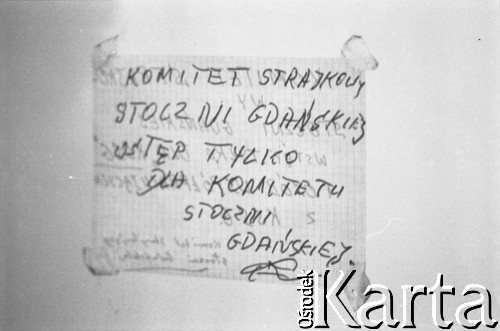 KOMITET STRAJKOWY
STOCZNI GDAŃSKIEJ
WSTĘP TYLKO
DLA KOMITETU
STOCZNI
GDAŃSKIEJ.
Ośrodek Karta